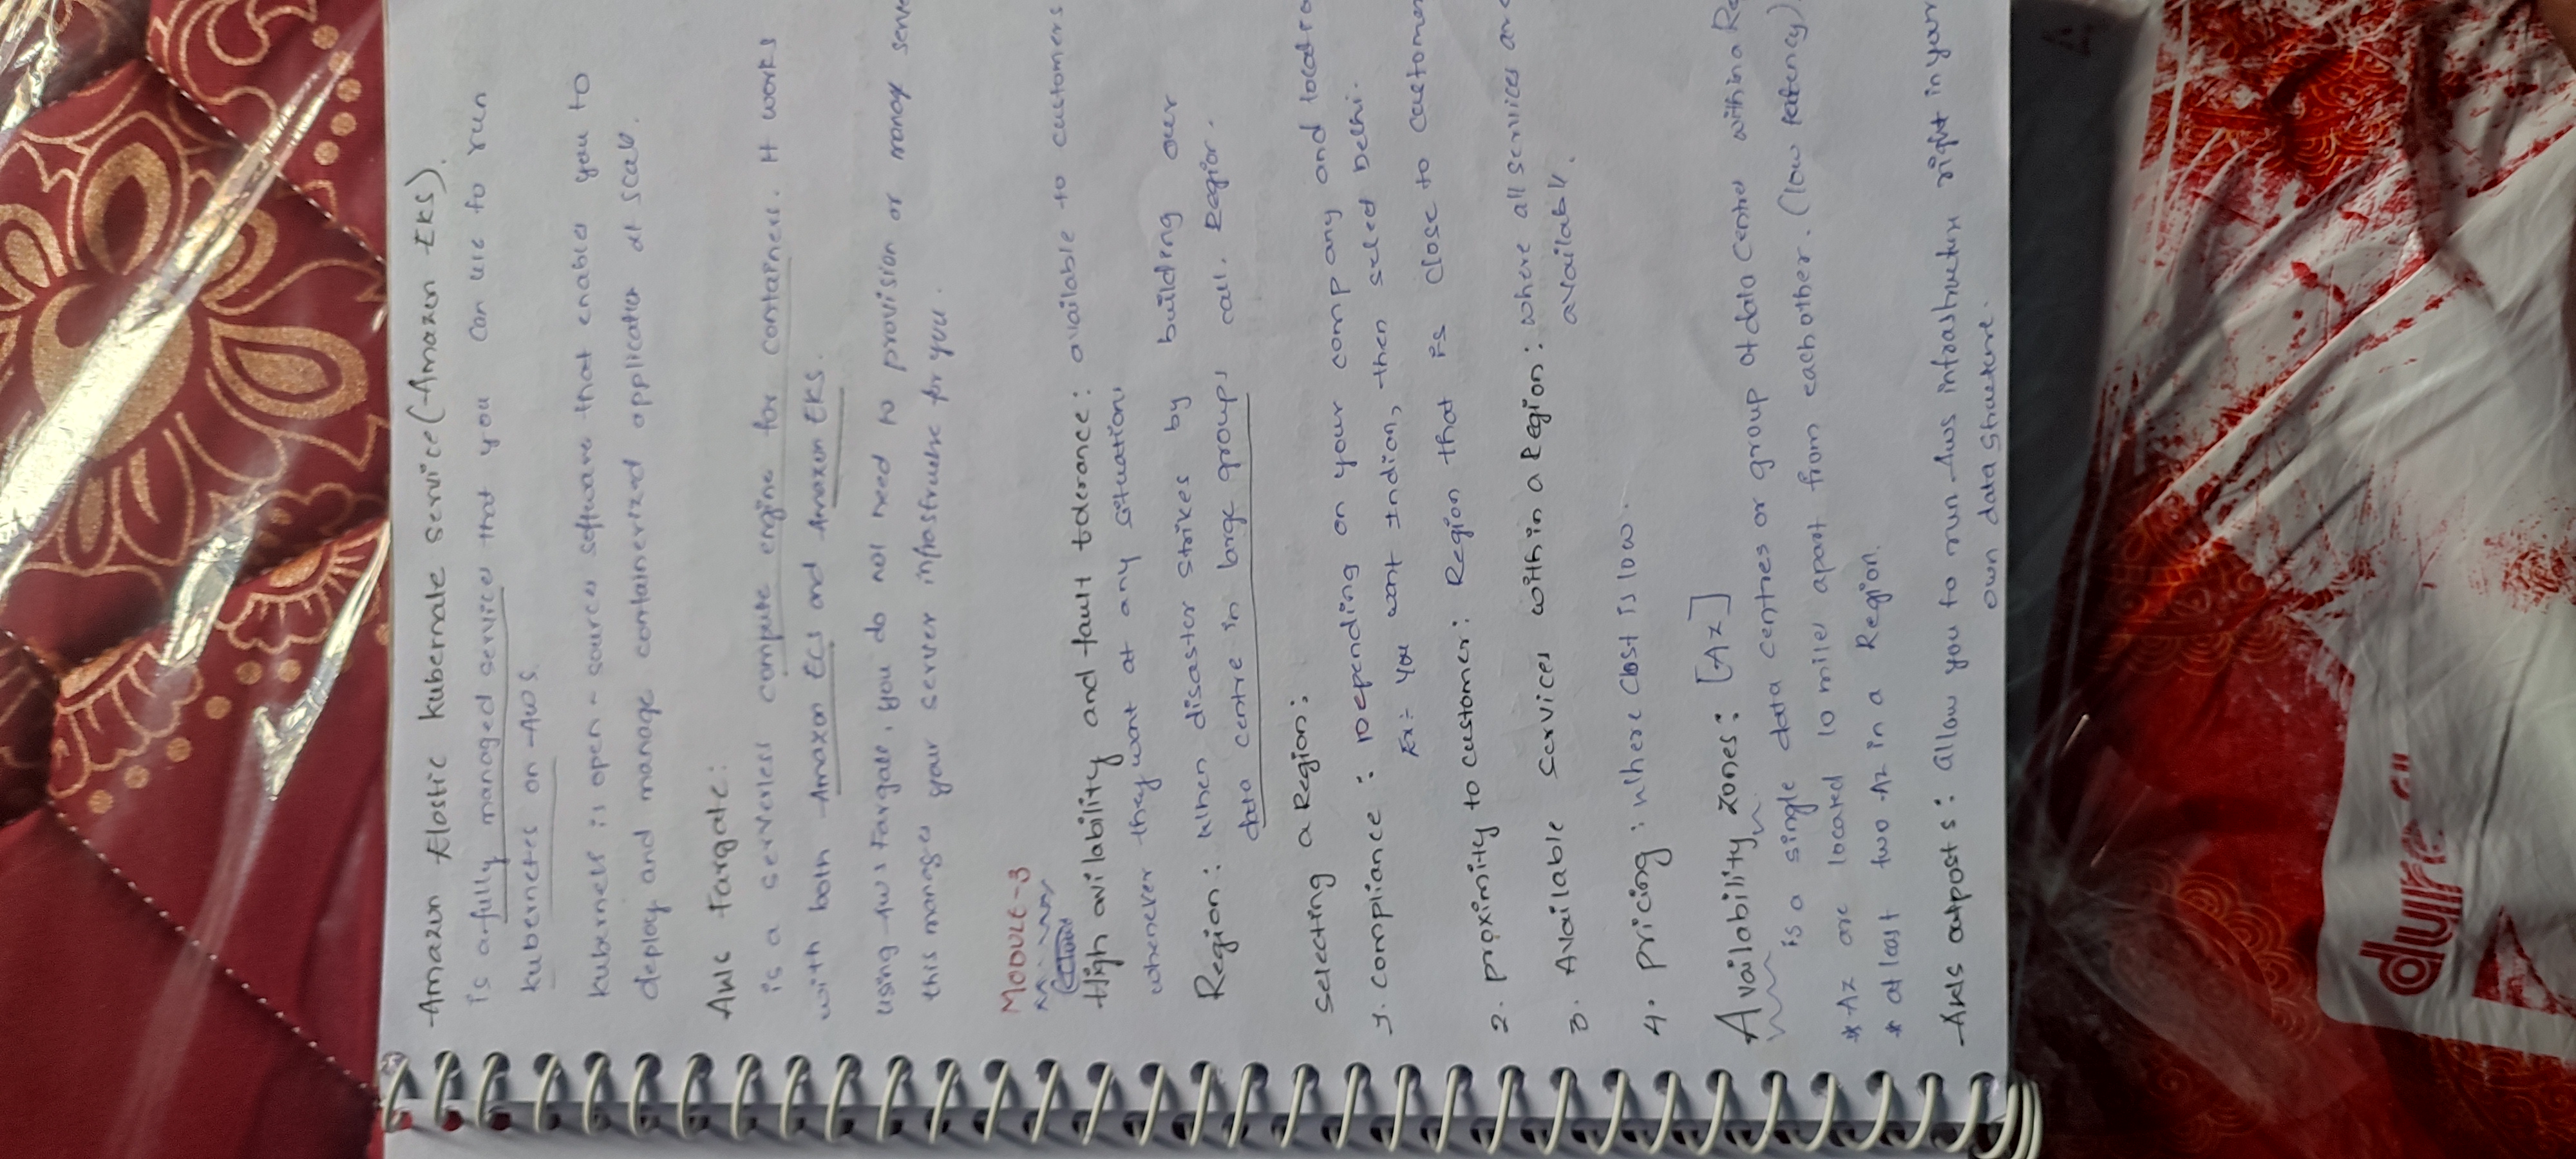 Amazon Elastic Kubernate Service (Amazon EKS).
is a fully managed service that you can use to run
kubernetes on AWS.
Kubernets is open-source software that enables you to
deploy and manage containerized application at scale.
AWS Fargate:
is a serverless compute engine for containers. It works
with both Amazon ECS and Amazon EKS.
using AWS Fargate, you do not need to provision or manage serve
this manages your server infrastructure for you.
MODULE-3
High avilability and fault tolerance: available to customers
whenever they want at any situation.
Region: When disaster strikes by building our
data centre in large groups call. Region.
Selecting a Region:
1. compliance: Depending on your company and locatio
Ex:- you want Indian, then select Delhi.
2. proximity to customer: Region that is close to customer
3. Available Services within a Region: where all services are
available.
4. pricing: where cost is low.
Availability zones: [AZ]
is a single data centres or group of data centres within a Re
* AZ are located 10 miles apart from each other. (low latency)
* at least two AZ in a Region.
AWS outposts: allow you to run AWS infrastructure right in your
own data structure.
dure